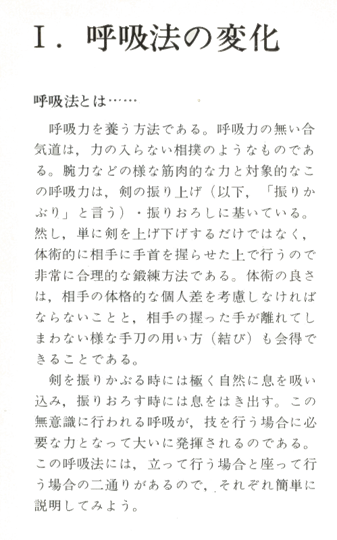 I. 呼吸法の変化
呼吸法とは……
呼吸力を養う方法である。呼吸力の無い合
気道は、力の入らない相撲のようなものであ
る。腕力などの様な筋肉的な力と対象的なこ
の呼吸力は、剣の振り上げ（以下、「振りか
ぶり」と言う）・振りおろしに基いている。
然し、単に剣を上げ下げするだけではなく、
体術的に相手に手首を握らせた上で行うので
非常に合理的な鍛練方法である。体術の良さ
は、相手の体格的な個人差を考慮しなければ
ならないことと、相手の握った手が離れてし
まわない様な手刀の用い方（結び）も会得で
きることである。
剣を振りかぶる時には極く自然に息を吸い
込み、振りおろす時には息をはき出す。この
無意識に行われる呼吸が、技を行う場合に必
要な力となって大いに発揮されるのである。
この呼吸法には、立って行う場合と座って行
う場合の二通りがあるので、それぞれ簡単に
説明してみよう。